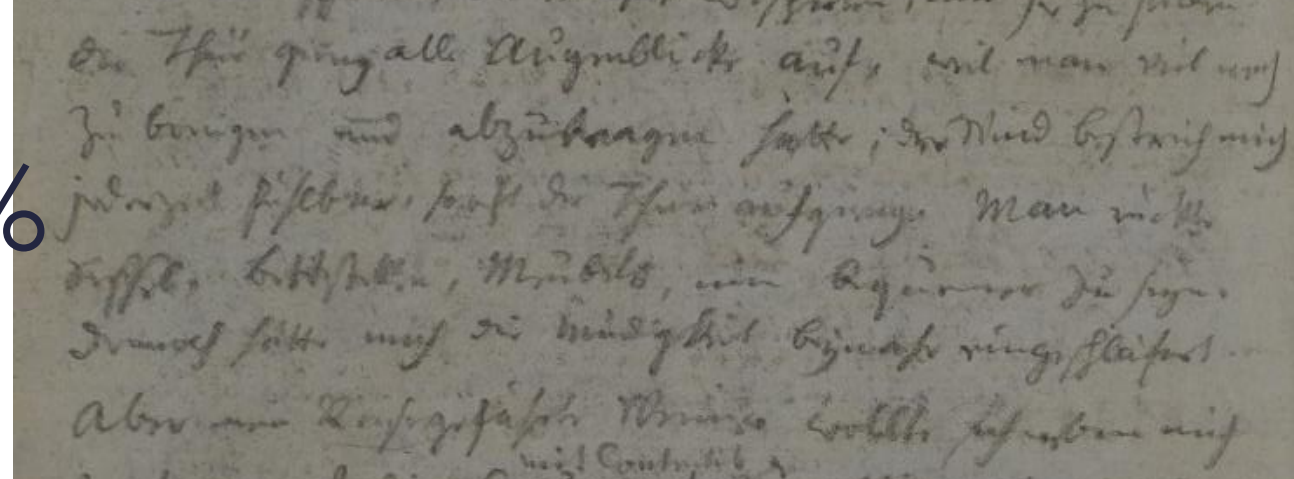 die Thür ging alle Augenblicke auf, weil man viel noch
zu bringen und abzutragen hatte; der Wind bestrich mich
jederzeit fühlbar, sooft die Thür aufginge. Man rückte
Sessel, Bettstellen, Meubels, um bequemer zu seyn.
Dennoch hätte mich die Müdigkeit beynahe eingeschläfert.
Aber mein Reisegefährte wollte sich neben mich
mit